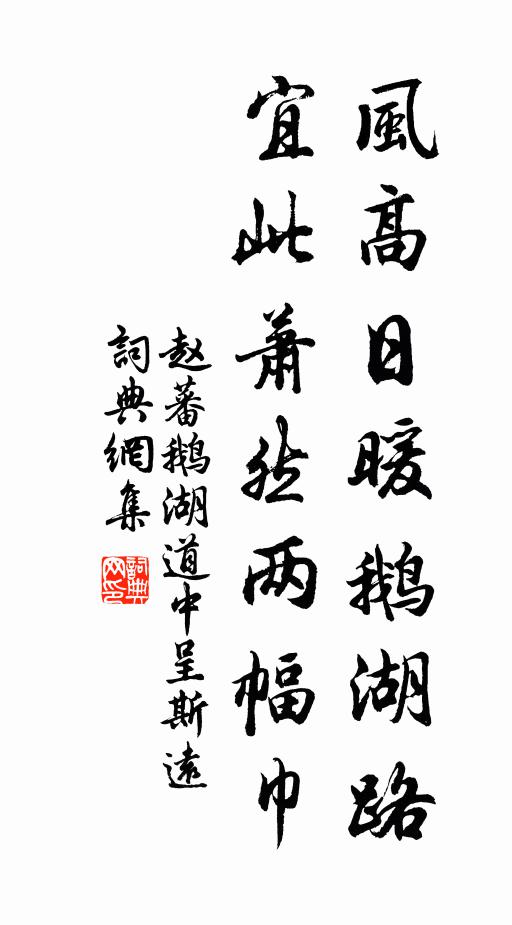 風高日暖鵝湖路
宜此蕭然两幅巾
赵蕃鵝湖道中呈斯遠
詞典網集
詞典
网印